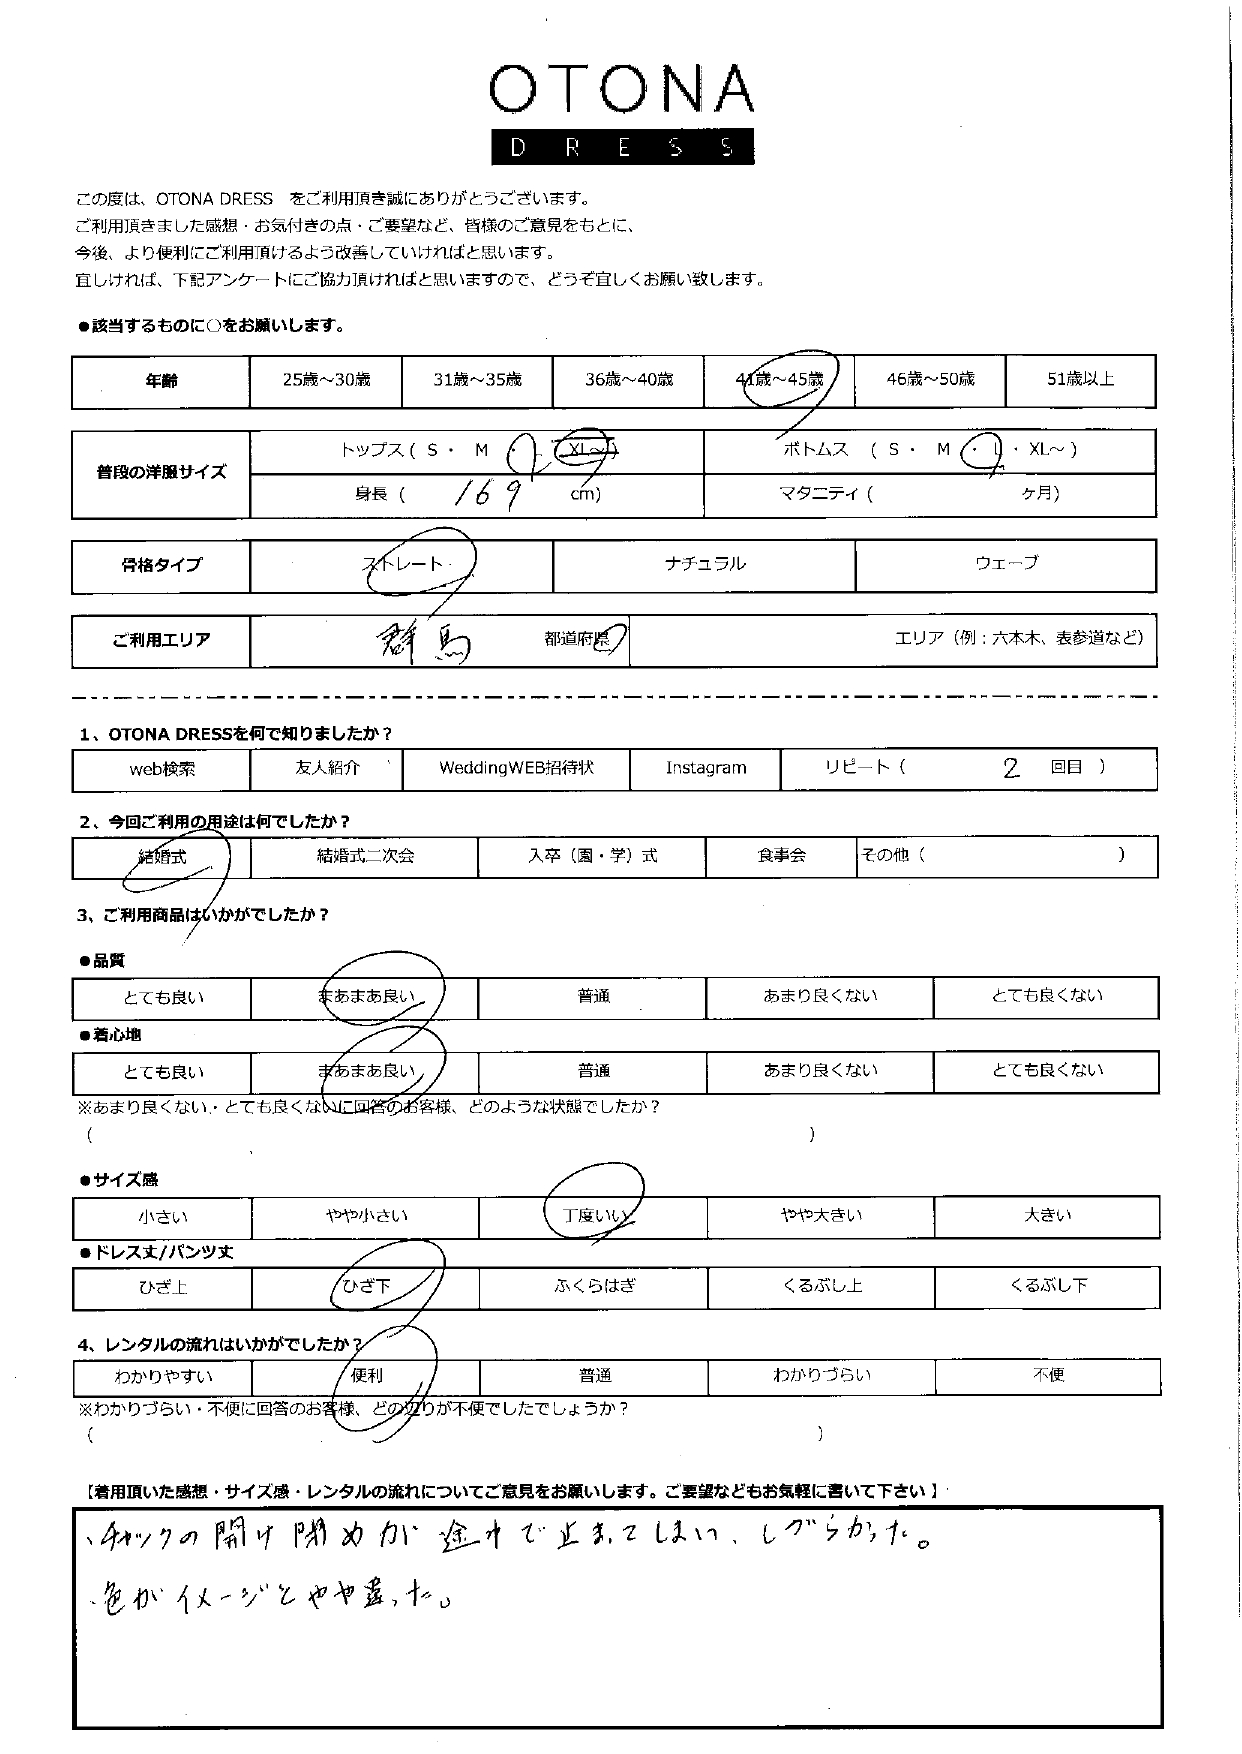 OTONA
DRESS
この度は、OTONA DRESS をご利用頂き誠にありがとうございます。
ご利用頂きました感想・お気付きの点・ご要望など、皆様のご意見をもとに、
今後、より便利にご利用頂けるよう改善していければと思います。
宜しければ、下記アンケートにご協力頂ければと思いますので、どうぞ宜しくお願い致します。
●該当するものに○をお願いします。
年齢 25歳～30歳 31歳～35歳 36歳～40歳 41歳～45歳 46歳～50歳 51歳以上
普段の洋服サイズ トップス ( S ・ M ・ L ・ XL～ ) ボトムス ( S ・ M ・ L ・ XL～ )
身長 ( 169 cm) マタニティ ( ケ月)
骨格タイプ ストレート ナチュラル ウェーブ
ご利用エリア 群馬 都道府県 エリア（例：六本木、表参道など）
1、OTONA DRESSを何で知りましたか？
web検索 友人紹介 WeddingWEB招待状 Instagram リピート ( 2 回目 )
2、今回ご利用の用途は何でしたか？
結婚式 結婚式二次会 入卒（園・学）式 食事会 その他 ( )
3、ご利用商品はいかがでしたか？
●品質
とても良い まあまあ良い 普通 あまり良くない とても良くない
●着心地
とても良い まあまあ良い 普通 あまり良くない とても良くない
※あまり良くない・とても良くないに回答のお客様、どのような状態でしたか？
( )
●サイズ感
小さい やや小さい 丁度いい やや大きい 大きい
●ドレス丈/パンツ丈
ひざ上 ひざ下 ふくらはぎ くるぶし上 くるぶし下
4、レンタルの流れはいかがでしたか？
わかりやすい 便利 普通 わかりづらい 不便
※わかりづらい・不便に回答のお客様、どの辺りが不便でしたでしょうか？
( )
【着用頂いた感想・サイズ感・レンタルの流れについてご意見をお願いします。ご要望などもお気軽に書いて下さい】
、チャックの開け閉めが途中で止まってしまい、しづらかった。
、色がイメージとやや違った。